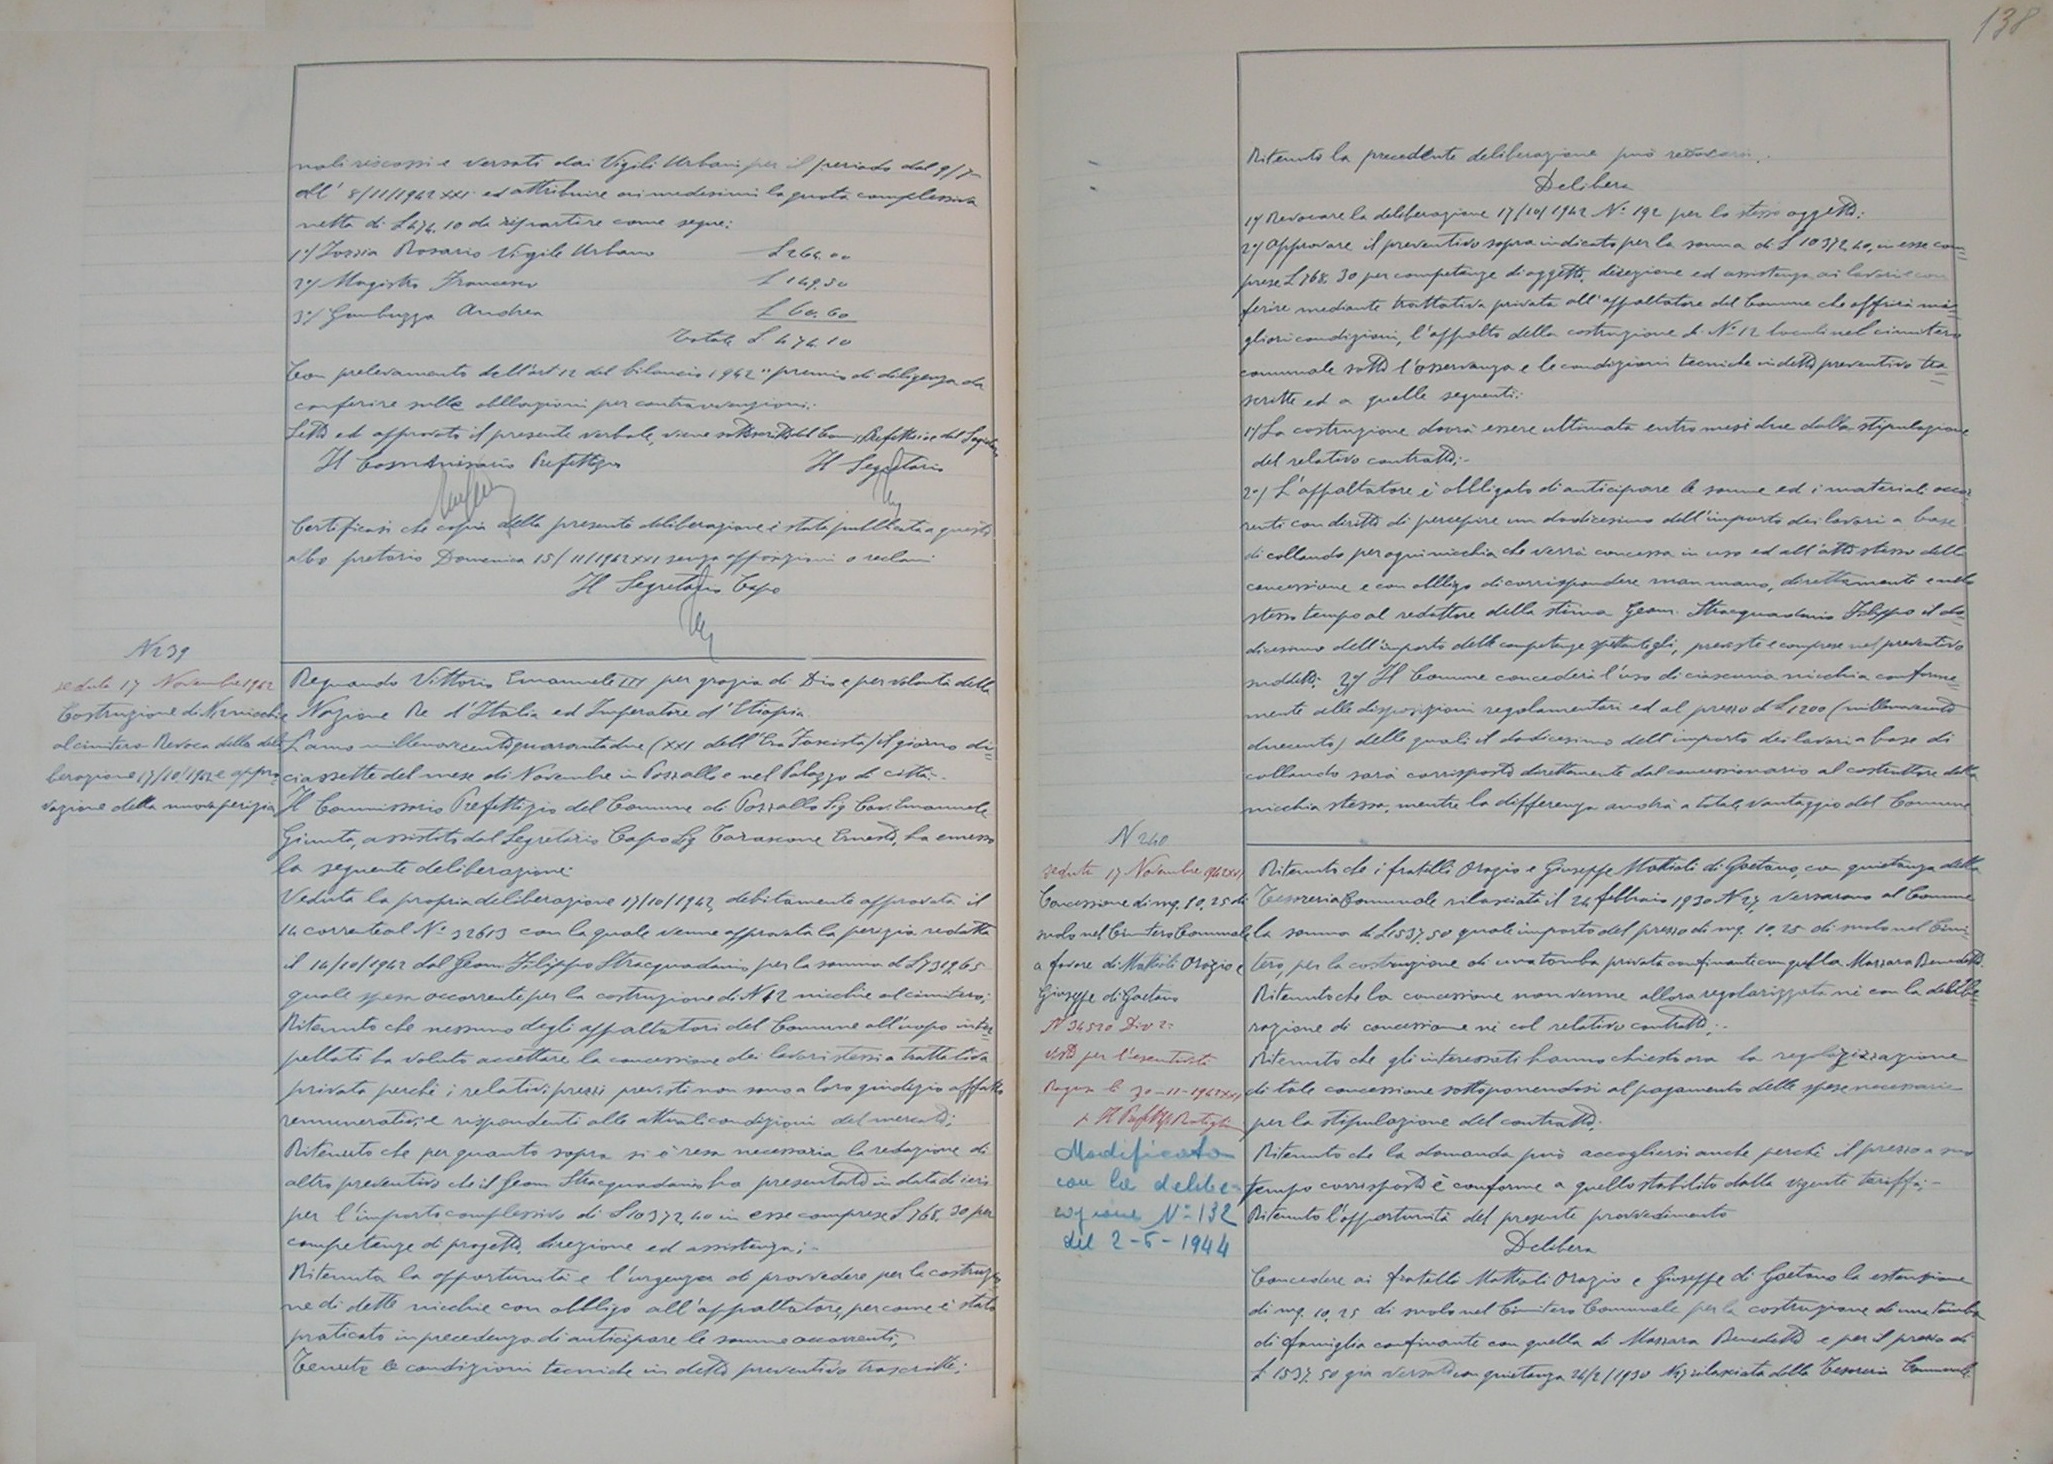 138
nali riscossi e versati dai Vigili Urbani per il periodo dal 9/7
all' 8/11/1942 XXI ed attribuire ai medesimi la quota complessiva
netta di £ 474.10 da ripartire come segue:
1°/ Rosario Vigile Urbano £ 264.00
2°/ Magistro Francesco £ 149.50
3°/ Gambuzza Andrea £ 60.60
Totale £ 474.10
Con prelevamento dell'art 12 del bilancio 1942 "premio di diligenza da
conferire sulle oblazioni per contravvenzioni:
Letto ed approvato il presente verbale, viene sottoscritto dal Comm. Prefettizio e dal Segretario
Il Commissario Prefettizio Il Segretario
Certificasi che copia della presente deliberazione è stata pubblicata a questo
albo pretorio Domenica 15/11/1942 XXI senza opposizioni o reclami
Il Segretario Capo
N 239
seduta 17 Novembre 1942
Costruzione di N 12 nicchie
al cimitero Revoca della deli
berazione 17/10/1942 e appro
vazione della nuova perizia
Regnando Vittorio Emanuele III per grazia di Dio e per volontà della
Nazione Re d'Italia ed Imperatore d'Etiopia
L'anno millenovecentoquarantadue (XXI dell'Era Fascista) il giorno di=
ciassette del mese di Novembre in Pozzallo e nel Palazzo di città.
Il Commissario Prefettizio del Comune di Pozzallo Sig Cav. Emanuele
Giunta, assistito dal Segretario Capo Sig Tarascone Ernesto, ha emesso
la seguente deliberazione:
Veduta la propria deliberazione 17/10/1942, debitamente approvata il
14 corrente al N° 32613 con la quale venne approvata la perizia redatta
il 14/10/1942 dal Geom Filippo Stracquadanio per la somma di £ 7319,65
quale spesa occorrente per la costruzione di N 12 nicchie al cimitero;
Ritenuto che nessuno degli appaltatori del Comune all'uopo inter=
pellati ha voluto accettare la concessione dei lavori stessi a trattativa
privata perchè i relativi prezzi previsti non sono a loro giudizio affatto
remunerativi e rispondenti alle attuali condizioni del mercato;
Ritenuto che per quanto sopra si è resa necessaria la redazione di
altro preventivo che il Geom Stracquadanio ha presentato in data di ieri
per l'importo complessivo di £ 10372,40 in esse comprese £ 768,30 per
competenze di progetto, direzione ed assistenza;-
Ritenuta la opportunità e l'urgenza di provvedere per la costruzio
ne di dette nicchie con obbligo all'appaltatore, per come è stato
praticato in precedenza di anticipare le somme occorrenti;
Tenute le condizioni tecniche in detto preventivo trascritte;
Ritenuto la precedente deliberazione può revocarsi.
Delibera
1°/ Revocare la deliberazione 17/10/1942 N° 192 per lo stesso oggetto:
2°/ Approvare il preventivo sopra indicato per la somma di £ 10372,40, in esse com
prese £ 768,30 per competenze di oggetto, direzione ed assistenza ai lavori e con
ferire mediante trattativa privata all'appaltatore del Comune che offrirà mi=
gliori condizioni, l'appalto della costruzione di N° 12 loculi nel cimitero
comunale sotto l'osservanza e le condizioni tecniche in detto preventivo tra=
scritte ed a quelle seguenti:
1°/ La costruzione dovrà essere ultimata entro mesi due dalla stipulazione
del relativo contratto;-
2°/ L'appaltatore è obbligato di anticipare le somme ed i materiali occor
renti con diritto di percepire un dodicesimo dell'importo dei lavori a base
di collaudo per ogni nicchia che verrà concessa in uso ed all'atto stesso della
concessione e con obbligo di corrispondere man mano, direttamente e nello
stesso tempo al redattore della stima Geom. Stracquadanio Filippo il do=
dicesimo dell'importo delle competenze spettantegli, previste e comprese nel preventivo
suddetto; 3°/ Il Comune concederà l'uso di ciascuna nicchia conforme=
mente alle disposizioni regolamentari ed al prezzo di £ 1200 (
duecento) delle quali il dodicesimo dell'importo dei lavori a base di
collaudo sarà corrisposto direttamente dal concessionario al costruttore della
nicchia stessa, mentre la differenza andrà a totale vantaggio del Comune
N 240
seduta 17 Novembre 1942 XXI
Concessione di mq. 10,25 di
suolo nel Cimitero Comunale
a favore di Mattioli Orazio e
Giuseppe di Gaetano
N 34520 Div 2ª
Visto per l'esecutività
Ragusa li 30-11-1942 XXI
Modificata
con la delibe=
razione N° 132
del 2-5-1944
Ritenuto che i fratelli Orazio e Giuseppe Mattioli di Gaetano, con quietanza della
Tesoreria Comunale rilasciata il 24 febbraio 1930 N 27, versarono al Comune
la somma di £ 1537,50 quale importo del prezzo di mq. 10,25 di suolo nel Cimi=
tero, per la costruzione di una tomba privata confinante con quella Mazzara Benedetto.
Ritenuto che la concessione non venne allora regolarizzata nè con la delibe=
razione di concessione nè col relativo contratto;-
Ritenuto che gli interessati hanno chiesto ora la regolarizzazione
di tale concessione sottoponendosi al pagamento delle spese necessarie
per la stipulazione del contratto;
Ritenuto che la domanda può accogliersi anche perchè il prezzo a suo
tempo corrisposto è conforme a quello stabilito dalla vigente tariffa;-
Ritenuto l'opportunità del presente provvedimento
Delibera
Concedere ai fratelli Mattioli Orazio e Giuseppe di Gaetano la estensione
di mq. 10,25 di suolo nel Cimitero Comunale per la costruzione di una tomba
di famiglia confinante con quella di Mazzara Benedetto e per il prezzo di
£ 1537,50 già versato con quietanza 24/2/1930 N 27 rilasciata dalla Tesoreria Comunale.